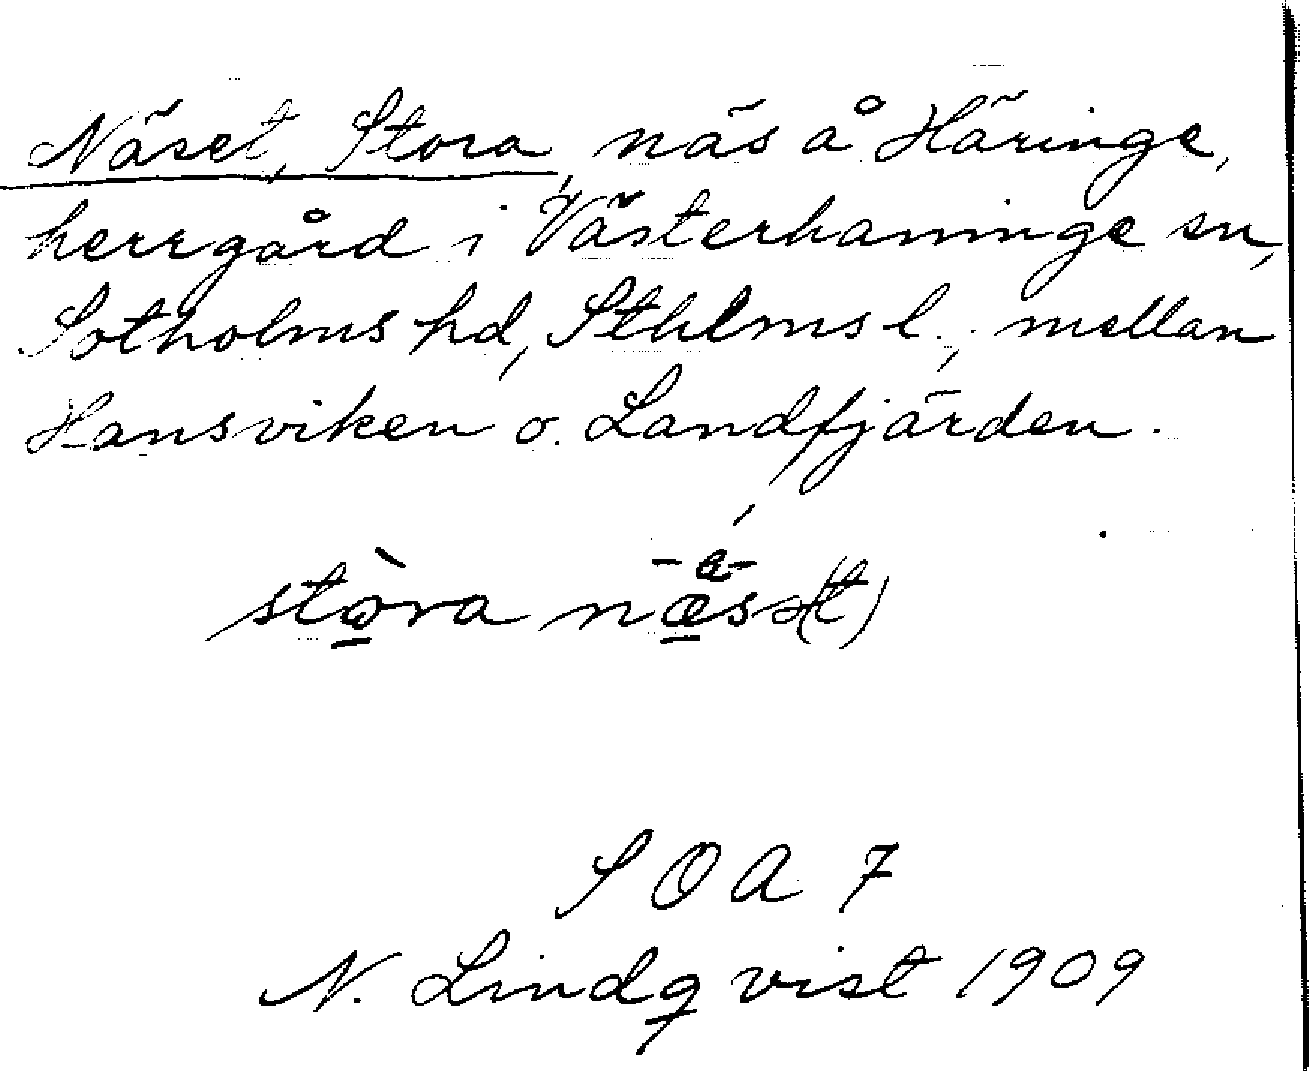 Näset, Stora, näs å Häringe,
herrgård i Västerhaninge sn,
Sotholms hd, Sthlms l., mellan
Hansviken o. Landfjärden.
-a-
stòra næ´sə(t)
S O A 7
N. Lindqvist 1909